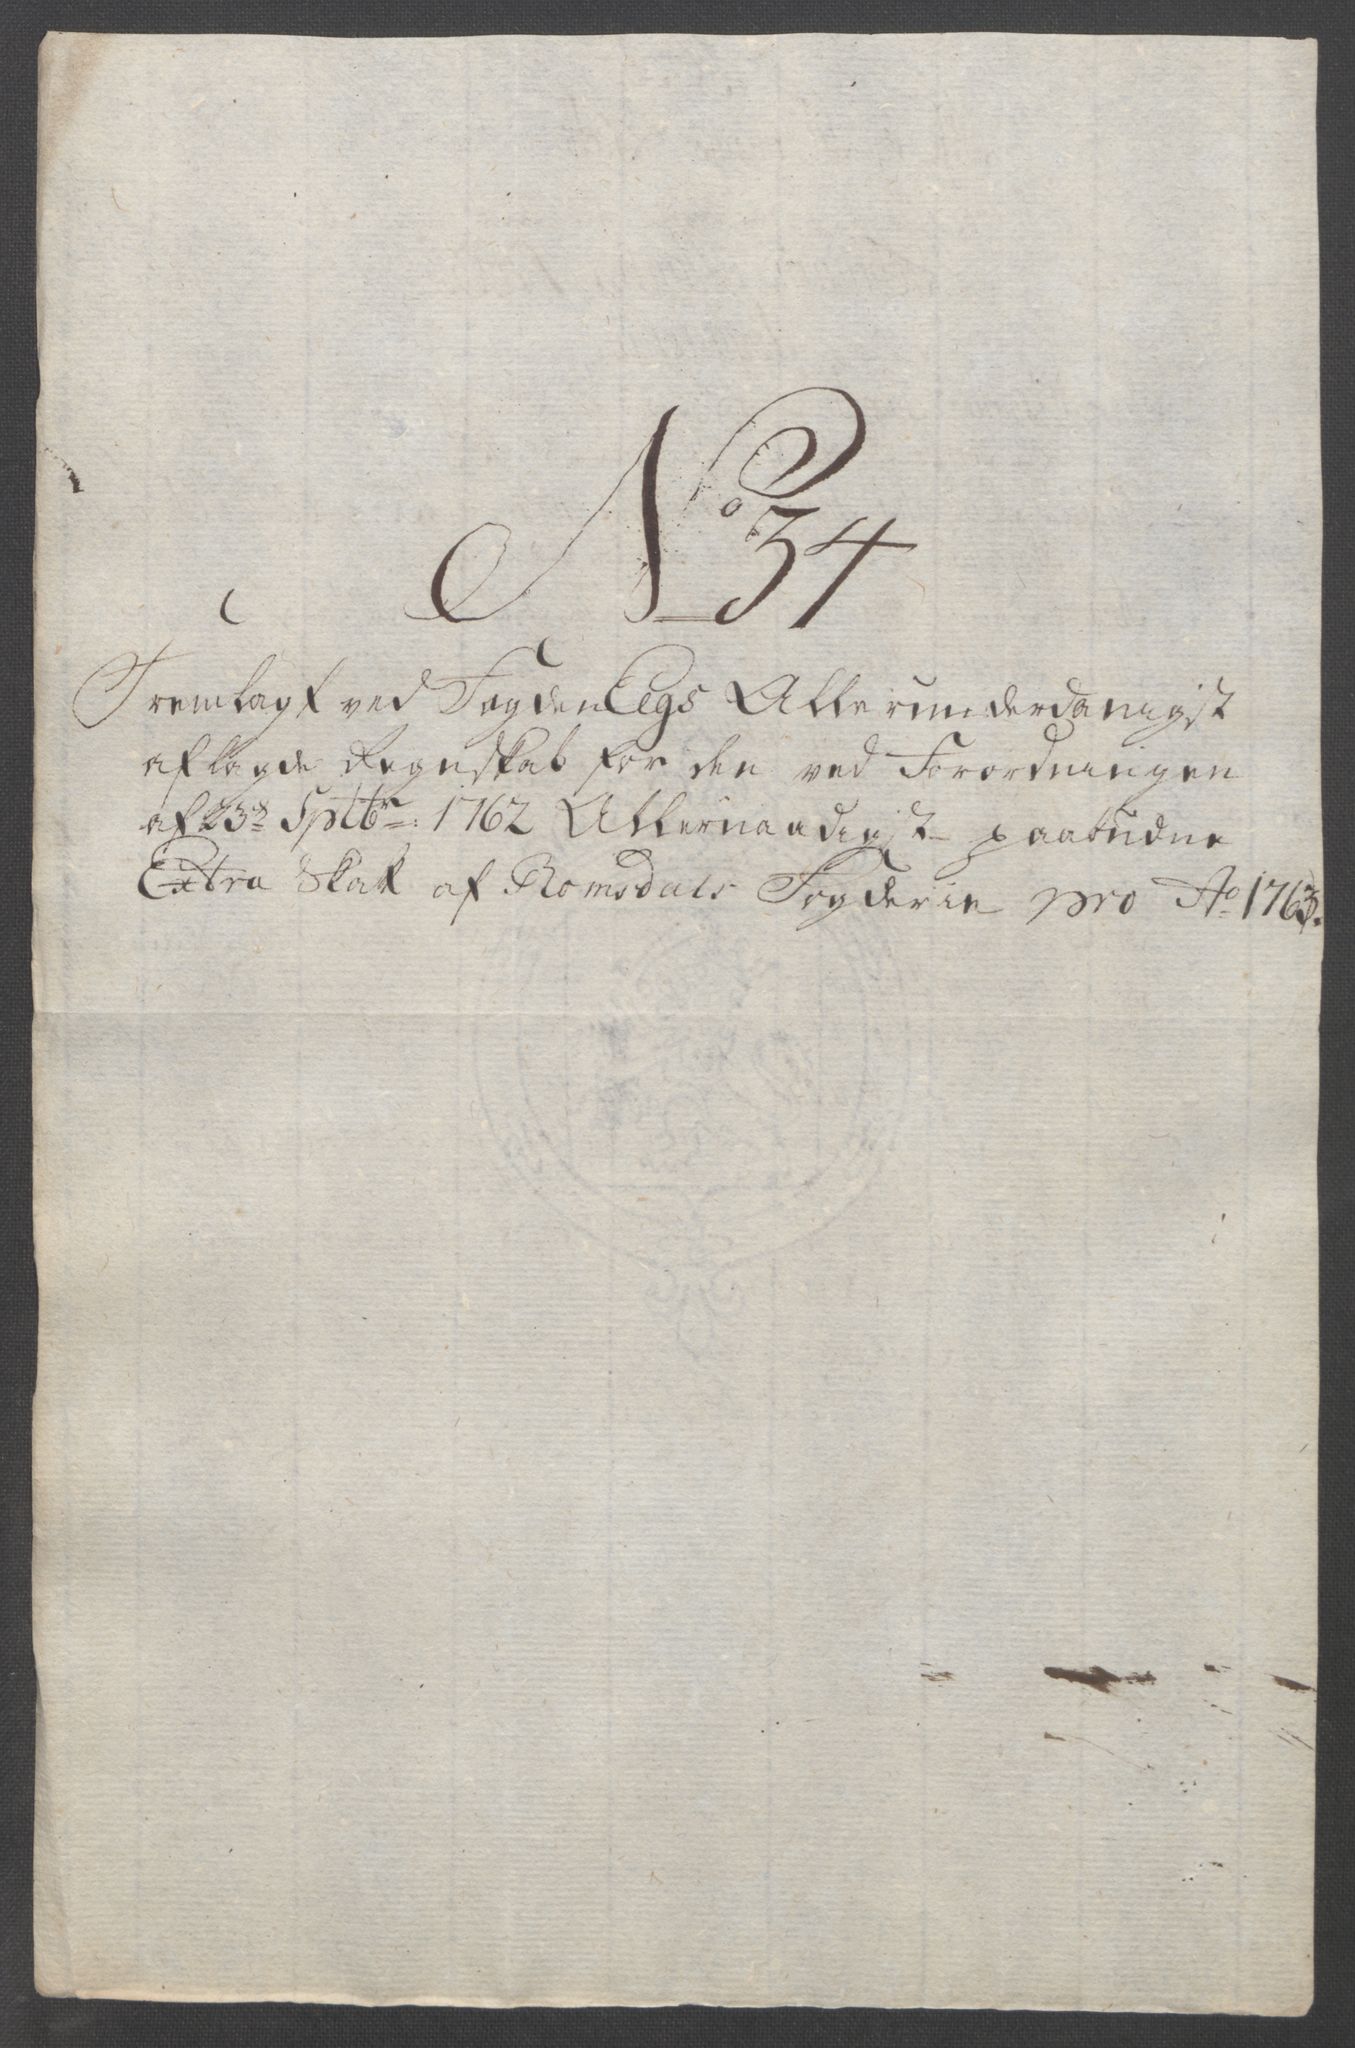 No 34
Fremlagt ved Fogden Eegs Allerunderdanigst
aflagde Regnskab for den ved Forordningen
af 23de Septbr: 1762 Allernaadigst paabudne
Extra Skatt af Romsdals Fogderie pro Ao 1763.